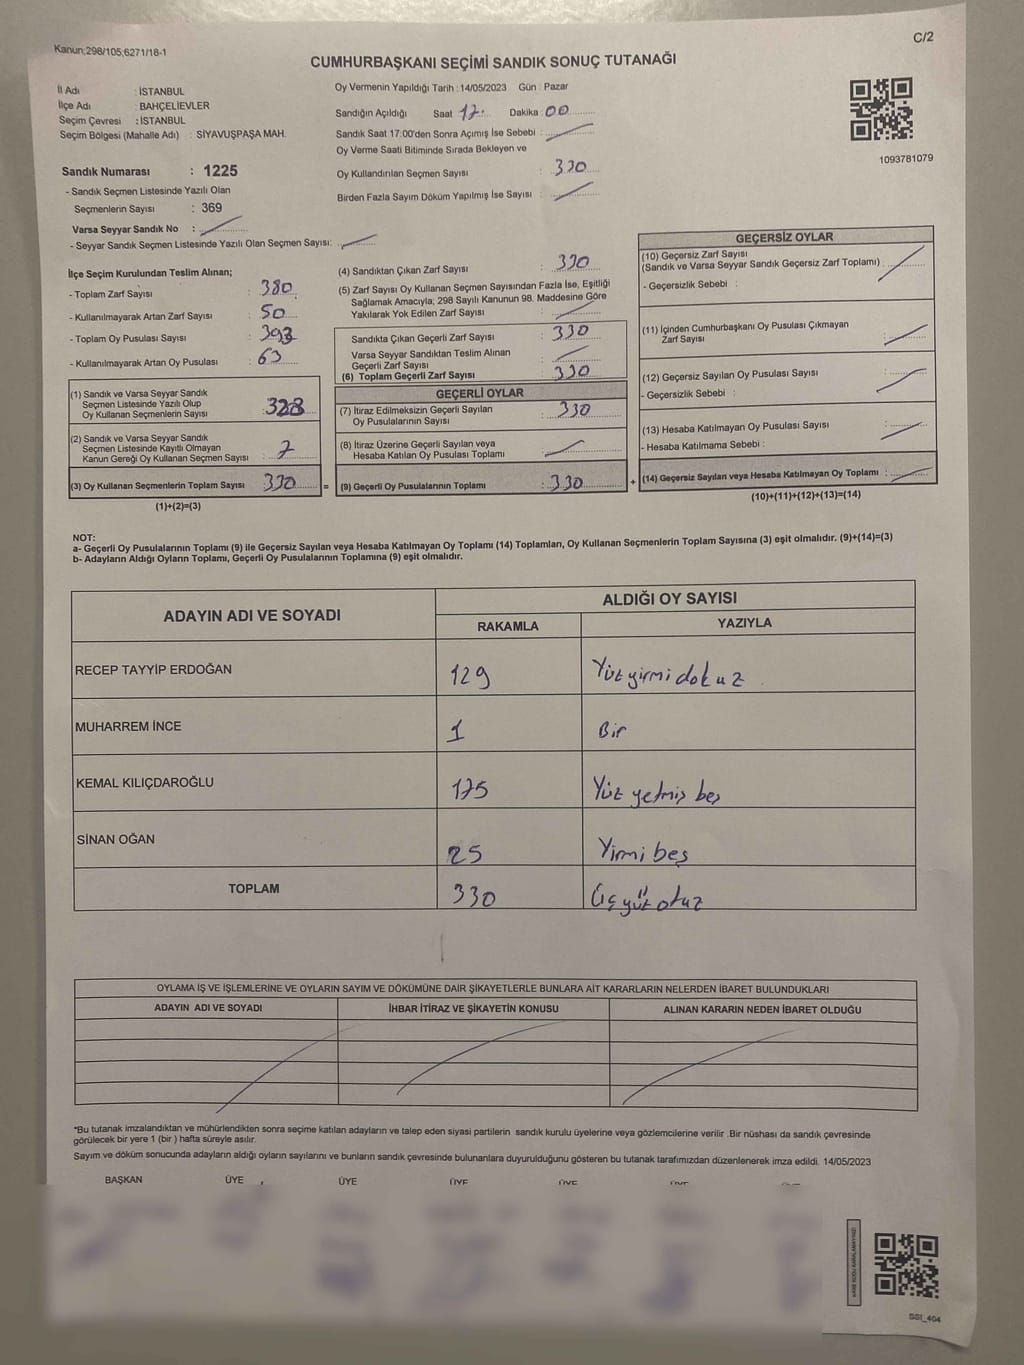 Kanun;298/105;6271/18-1
C/2
CUMHURBAŞKANI SEÇİMİ SANDIK SONUÇ TUTANAĞI
İl Adı : İSTANBUL
İlçe Adı : BAHÇELİEVLER
Seçim Çevresi : İSTANBUL
Seçim Bölgesi (Mahalle Adı) : SİYAVUŞPAŞA MAH.
Oy Vermenin Yapıldığı Tarih : 14/05/2023 Gün : Pazar
Sandığın Açıldığı Saat 17. Dakika : 00
Sandık Saat 17:00'den Sonra Açımış İse Sebebi :
Oy Verme Saati Bitiminde Sırada Bekleyen ve
Oy Kullandırılan Seçmen Sayısı : 330
Birden Fazla Sayım Döküm Yapılmış İse Sayısı :
1093781079
Sandık Numarası : 1225
- Sandık Seçmen Listesinde Yazılı Olan
Seçmenlerin Sayısı : 369
Varsa Seyyar Sandık No :
- Seyyar Sandık Seçmen Listesinde Yazılı Olan Seçmen Sayısı:
İlçe Seçim Kurulundan Teslim Alınan;
- Toplam Zarf Sayısı : 380
- Kullanılmayarak Artan Zarf Sayısı : 50
- Toplam Oy Pusulası Sayısı : 393
- Kullanılmayarak Artan Oy Pusulası : 63
(1) Sandık ve Varsa Seyyar Sandık
Seçmen Listesinde Yazılı Olup
Oy Kullanan Seçmenlerin Sayısı : 328
(2) Sandık ve Varsa Seyyar Sandık
Seçmen Listesinde Kayıtlı Olmayan
Kanun Gereği Oy Kullanan Seçmen Sayısı : 2
(3) Oy Kullanan Seçmenlerin Toplam Sayısı : 330
(1)+(2)=(3)
(4) Sandıktan Çıkan Zarf Sayısı : 330
(5) Zarf Sayısı Oy Kullanan Seçmen Sayısından Fazla İse, Eşitliği
Sağlamak Amacıyla; 298 Sayılı Kanunun 98. Maddesine Göre
Yakılarak Yok Edilen Zarf Sayısı :
Sandıkta Çıkan Geçerli Zarf Sayısı : 330
Varsa Seyyar Sandıktan Teslim Alınan
Geçerli Zarf Sayısı :
(6) Toplam Geçerli Zarf Sayısı : 330
GEÇERLİ OYLAR
(7) İtiraz Edilmeksizin Geçerli Sayılan
Oy Pusulalarının Sayısı : 330
(8) İtiraz Üzerine Geçerli Sayılan veya
Hesaba Katılan Oy Pusulası Toplamı :
= (9) Geçerli Oy Pusulalarının Toplamı : 330
GEÇERSİZ OYLAR
(10) Geçersiz Zarf Sayısı
(Sandık ve Varsa Seyyar Sandık Geçersiz Zarf Toplamı) :
- Geçersizlik Sebebi :
(11) İçinden Cumhurbaşkanı Oy Pusulası Çıkmayan
Zarf Sayısı :
(12) Geçersiz Sayılan Oy Pusulası Sayısı :
- Geçersizlik Sebebi :
(13) Hesaba Katılmayan Oy Pusulası Sayısı :
- Hesaba Katılmama Sebebi :
+ (14) Geçersiz Sayılan veya Hesaba Katılmayan Oy Toplamı :
(10)+(11)+(12)+(13)=(14)
NOT:
a- Geçerli Oy Pusulalarının Toplamı (9) ile Geçersiz Sayılan veya Hesaba Katılmayan Oy Toplamı (14) Toplamları, Oy Kullanan Seçmenlerin Toplam Sayısına (3) eşit olmalıdır. (9)+(14)=(3)
b- Adayların Aldığı Oyların Toplamı, Geçerli Oy Pusulalarının Toplamına (9) eşit olmalıdır.
ADAYIN ADI VE SOYADI
ALDIĞI OY SAYISI
RAKAMLA YAZIYLA
RECEP TAYYİP ERDOĞAN 129 Yüz yirmi dokuz
MUHARREM İNCE 1 Bir
KEMAL KILIÇDAROĞLU 175 Yüz yetmiş beş
SİNAN OĞAN 25 Yirmi beş
TOPLAM 330 Üç yüz otuz
OYLAMA İŞ VE İŞLEMLERİNE VE OYLARIN SAYIM VE DÖKÜMÜNE DAİR ŞİKAYETLERLE BUNLARA AİT KARARLARIN NELERDEN İBARET BULUNDUKLARI
ADAYIN ADI VE SOYADI İHBAR İTİRAZ VE ŞİKAYETİN KONUSU ALINAN KARARIN NEDEN İBARET OLDUĞU
*Bu tutanak imzalandıktan ve mühürlendikten sonra seçime katılan adayların ve talep eden siyasi partilerin sandık kurulu üyelerine veya gözlemcilerine verilir .Bir nüshası da sandık çevresinde
görülecek bir yere 1 (bir ) hafta süreyle asılır.
Sayım ve döküm sonucunda adayların aldığı oyların sayılarını ve bunların sandık çevresinde bulunanlara duyurulduğunu gösteren bu tutanak tarafımızdan düzenlenerek imza edildi. 14/05/2023
BAŞKAN ÜYE ÜYE ÜYE ÜYE
SSI_404